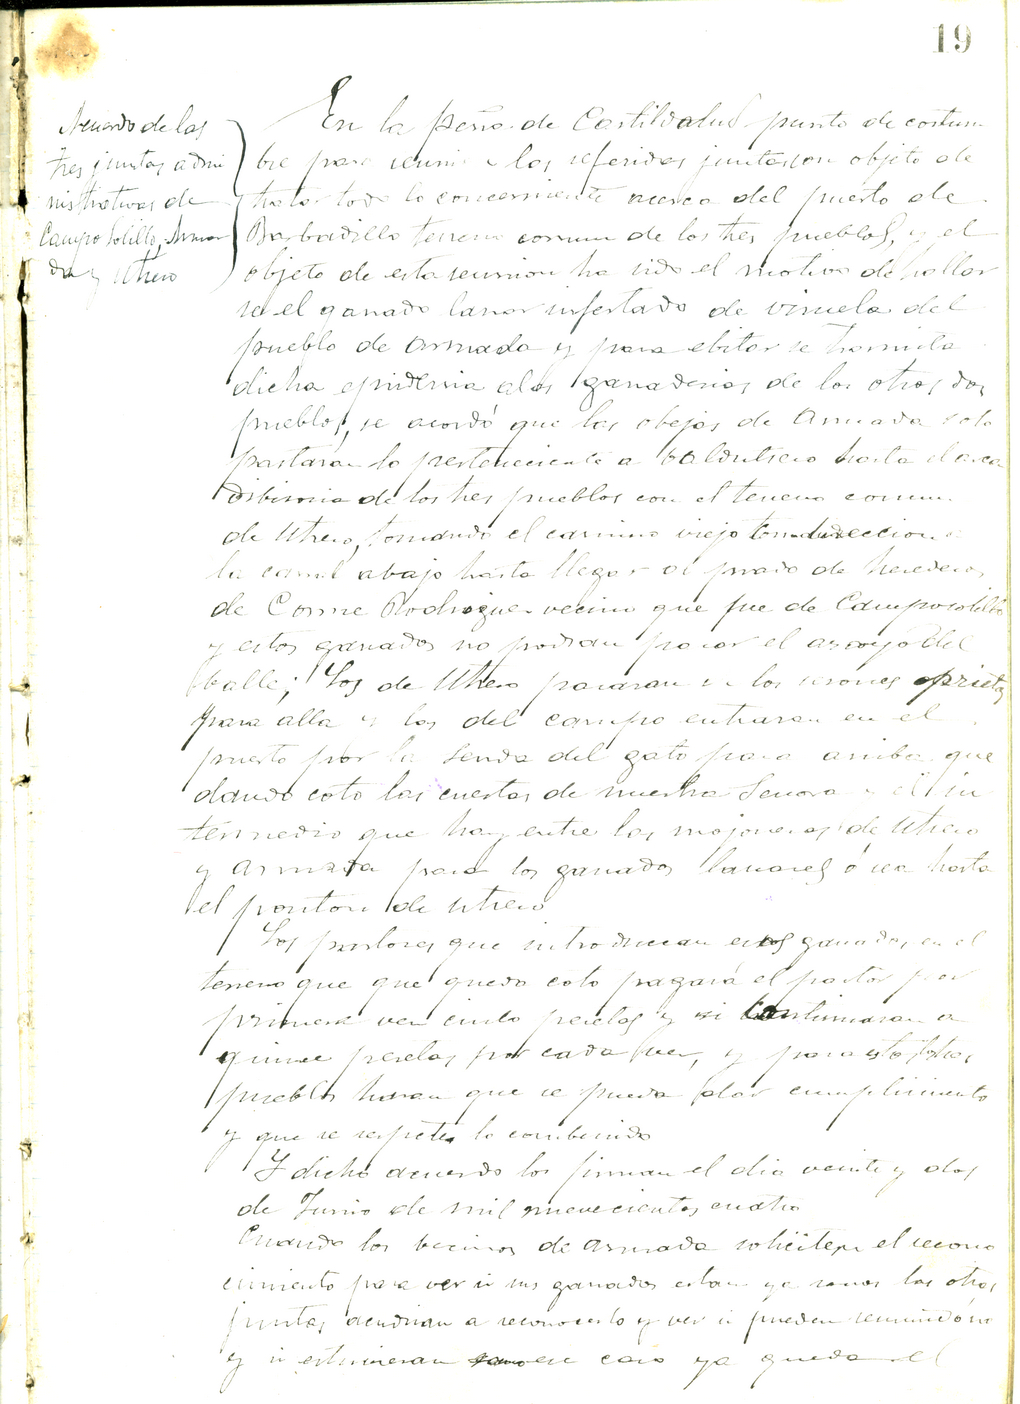 19
Acuerdo de las
tres juntas admi
nistrativas de
Camposolillo, Arma
da y Utrero
En la peña de Castildalud punto de costum
bre para reunirse las referidas juntas con objeto de
tratar todo lo concerniente acerca del puerto de
Barbadillo terreno comun de los tres pueblos, y el
objeto de esta reunion ha sido el motivo de hallar
se el ganado lanar infestado de viruela del
pueblo de Armada y para ebitar se trasmita
dicha epidemia a los ganaderias de los otros dos
pueblos, se acordó que las obejas de Armada solo
pastaran lo perteneciente a baldutrero hasta el arca
dibisoria de los tres pueblos con el terreno comun
de Utrero, tomando el camino viejo con direccion a
la canal abajo hasta llegar al prado de herederos
de Cosme Rodriguez vecino que fue de Camposolillo
y estos ganados no podran pasar el arroyo del
balle; Los de Utrero pasaran en los sesones oprietas
para alla y los del campo entraran en el
puerto por la senda del gato para arriba que
dando coto las cuestas de nuestra Senora y el in
termedio que hay entre las mojoneras de Utrero
y Armada para los ganados lanares ó sea hasta
el ponton de Utrero
Los pastores que introduzcan esos ganados en el
terreno que que queda coto pagará el pastor por
primera vez cinco pesetas y si continuaran a
quince pesetas por cada vez, y para esto los tres
pueblos haran que se pueda dar cumplimiento
y que se respete lo combenido
Y dicho acuerdo los firman el dia veinte y dos
de Junio de mil nuevecientos cuatro
Cuando los becinos de Armada soliciten el recono
cimiento para ver si sus ganados estan ya sanos las otras
juntas acudiran a reconocerlo y ver si pueden
y si estuvieran sanos en ese caso ya queda el